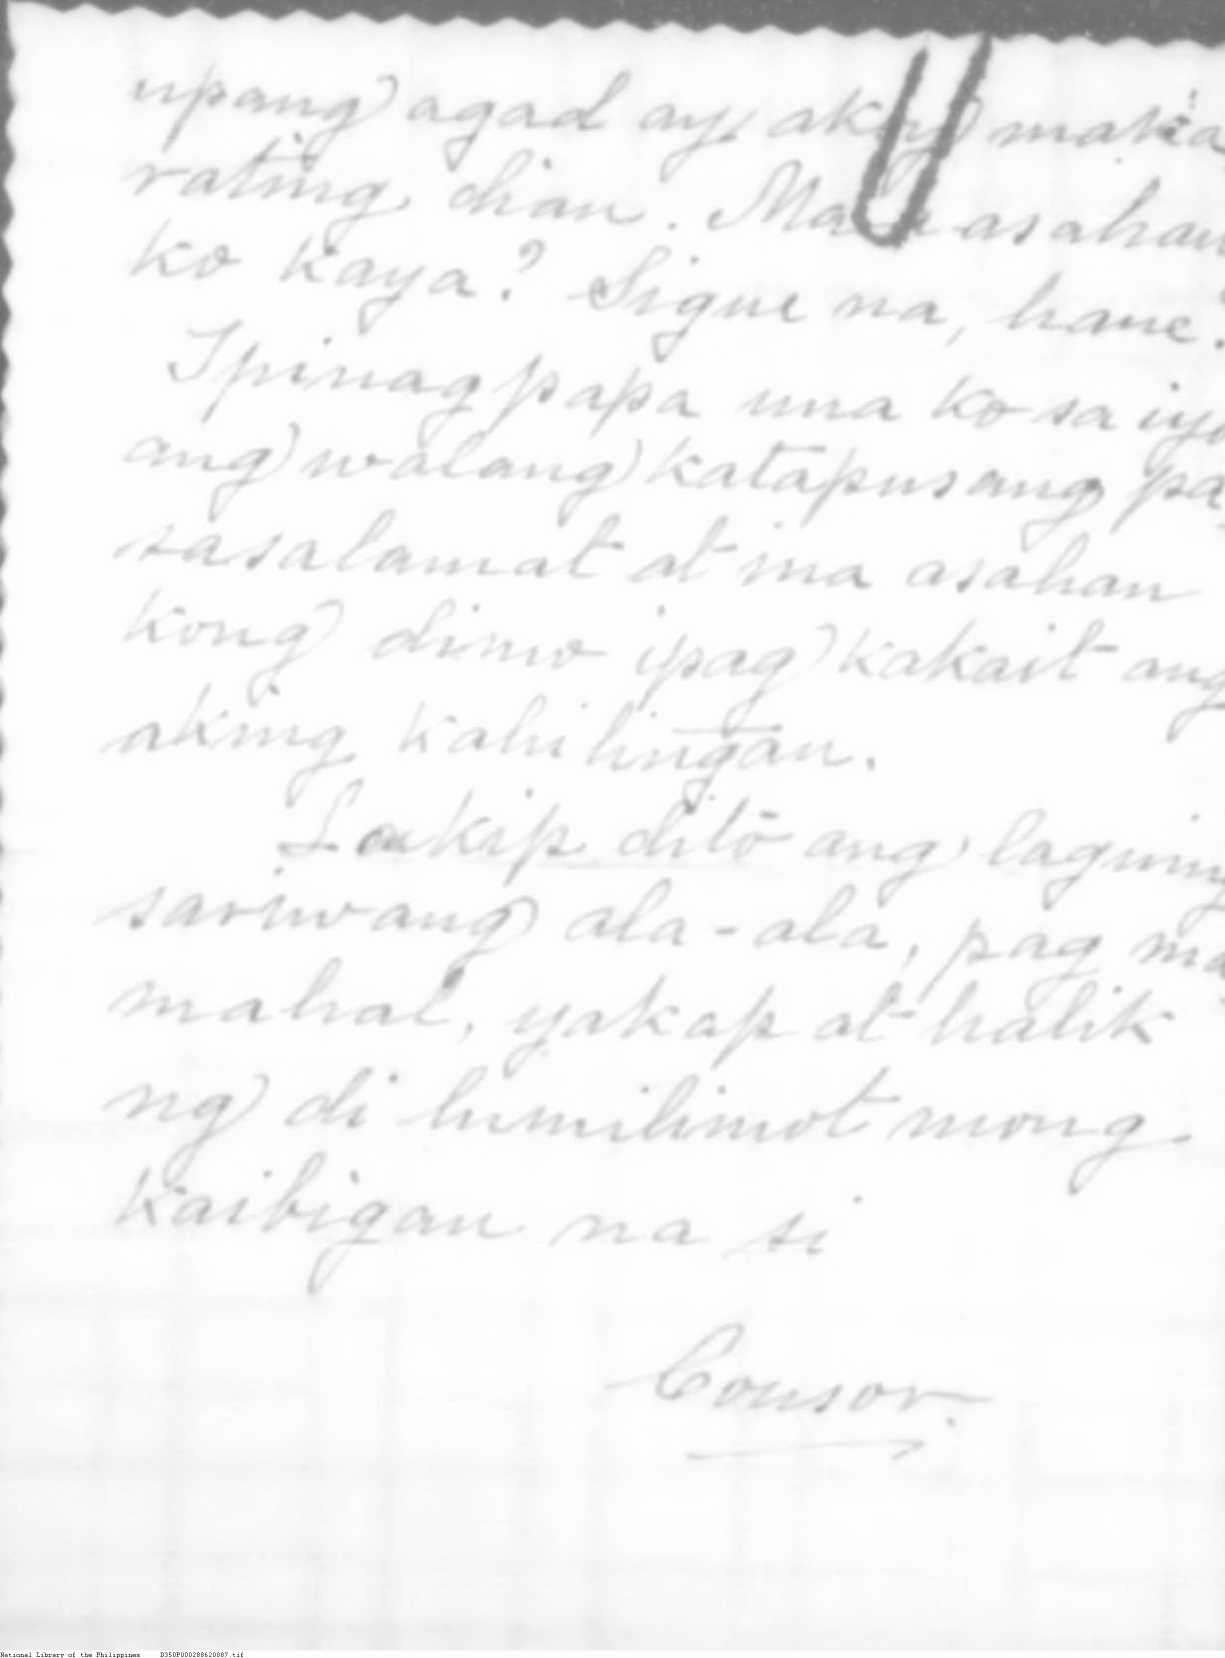 upang agad ay akoy maka
rating dian. Ma asahan
ko kaya? Sigue na, hane?
Ipinagpapa una ko sa iyo
ang walang katapusang pa
sasalamat at ma asahan
kong dimo ipag kakait ang
aking kahilingan.
Lakip ditō ang laguing
sariwang ala-ala, pag ma
mahal, yakap at halik
ng di lumilimot mong
kaibigan na si
Consor.
National Library of the Philippines D350P000288620087.tif